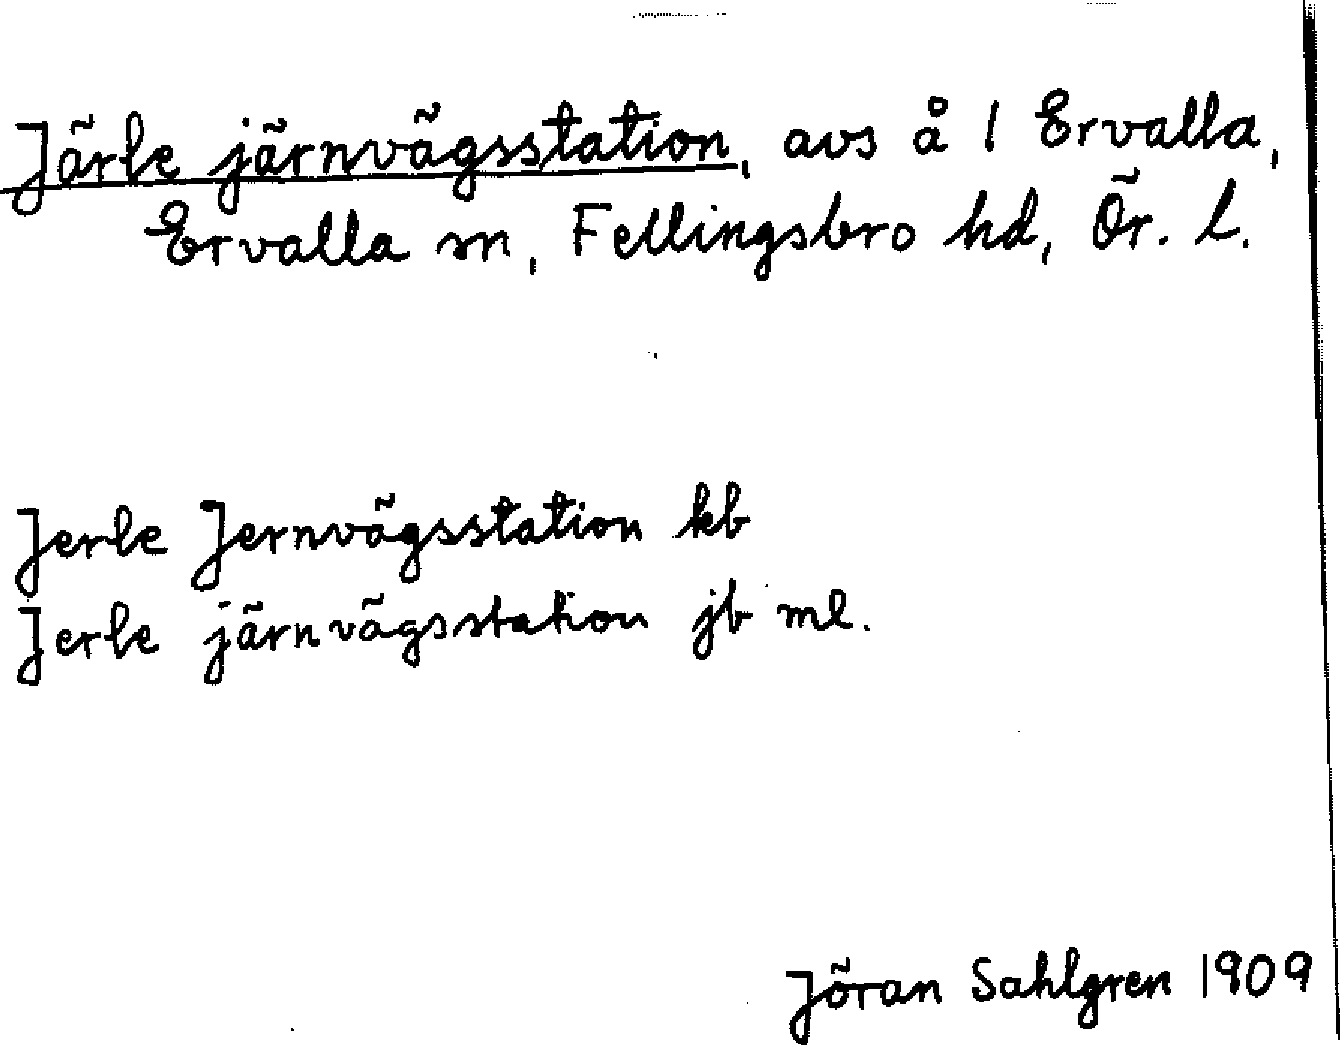 Järle järnvägsstation, avs å 1 Ervalla,
Ervalla sn, Fellingsbro hd, Ör. l.
Jerle Jernvägsstation kb
Jerle järnvägsstation jb ml.
Jöran Sahlgren 1909